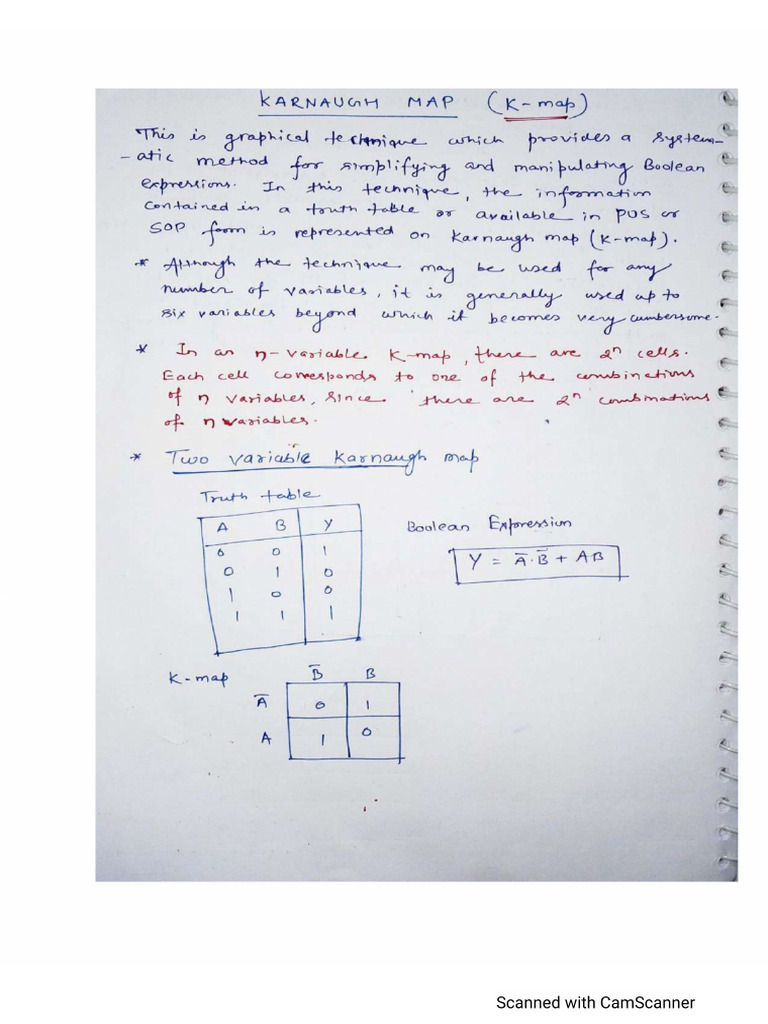 KARNAUGH MAP (K-map)
This is graphical technique which provides a system-
-atic method for simplifying and manipulating Boolean
expressions. In this technique, the information
contained in a truth table or available in POS or
SOP form is represented on Karnaugh map (K-map).
* Although the technique may be used for any
number of variables, it is generally used up to
six variables beyond which it becomes very cumbersome.
* In an n-variable K-map, there are 2ⁿ cells.
Each cell corresponds to one of the combinations
of n variables, since there are 2ⁿ combinations
of n variables.
* Two variable Karnaugh map
Truth table
A B Y
0 0 1
0 1 0
1 0 0
1 1 1
Boolean Expression
Y = A̅·B̅ + AB
K-map
B̅ B
A̅ 0 1
A 1 0
Scanned with CamScanner